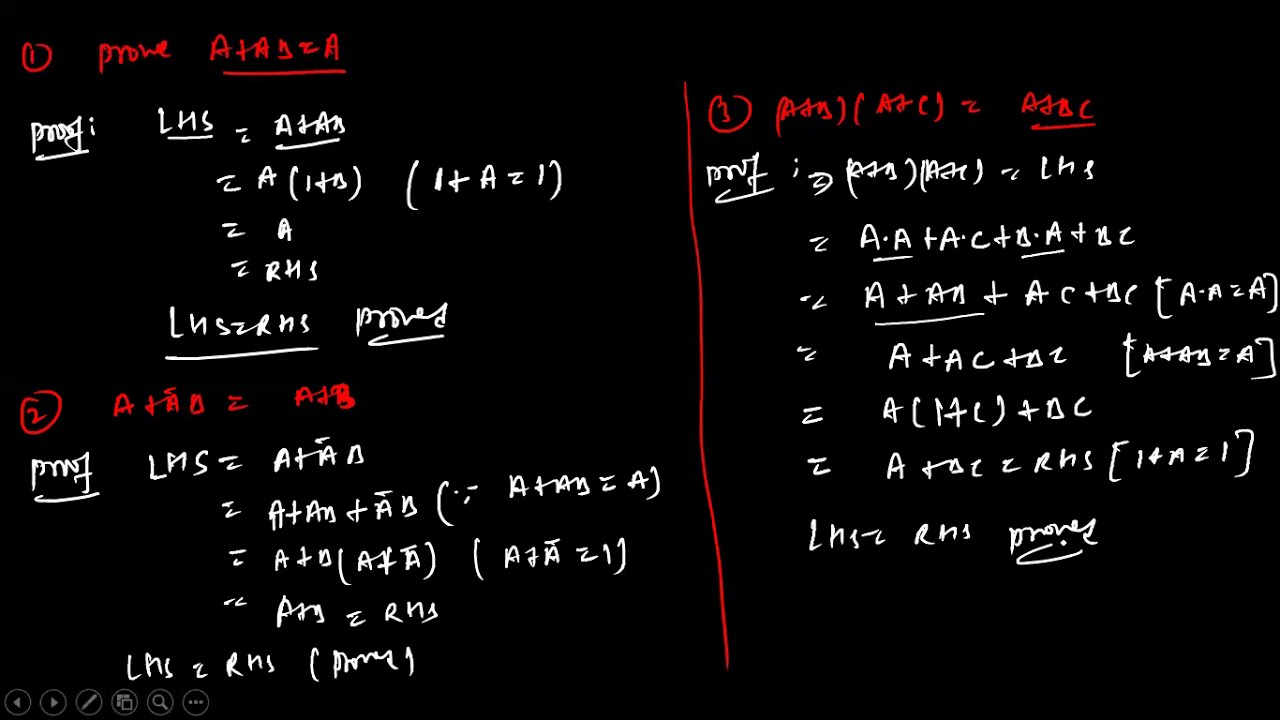 ① prove A+AB=A
proof: LHS = A+AB
= A(1+B) (1+A=1)
= A
= RHS
LHS=RHS proved
② A+ĀB = A+B
proof LHS = A+ĀB
= A+AB+ĀB (∵ A+AB=A)
= A+B(A+Ā) (A+Ā=1]
= A+B = RHS
LHS = RHS (proved)
③ (A+B)(A+C) = A+BC
proof : ⇒ (A+B)(A+C) = LHS
= A·A+A·C+B·A+BC
= A+AB+AC+BC [A·A=A]
= A+AC+BC [A+AB=A]
= A(1+C)+BC
= A+BC=RHS [1+A=1]
LHS= RHS proved